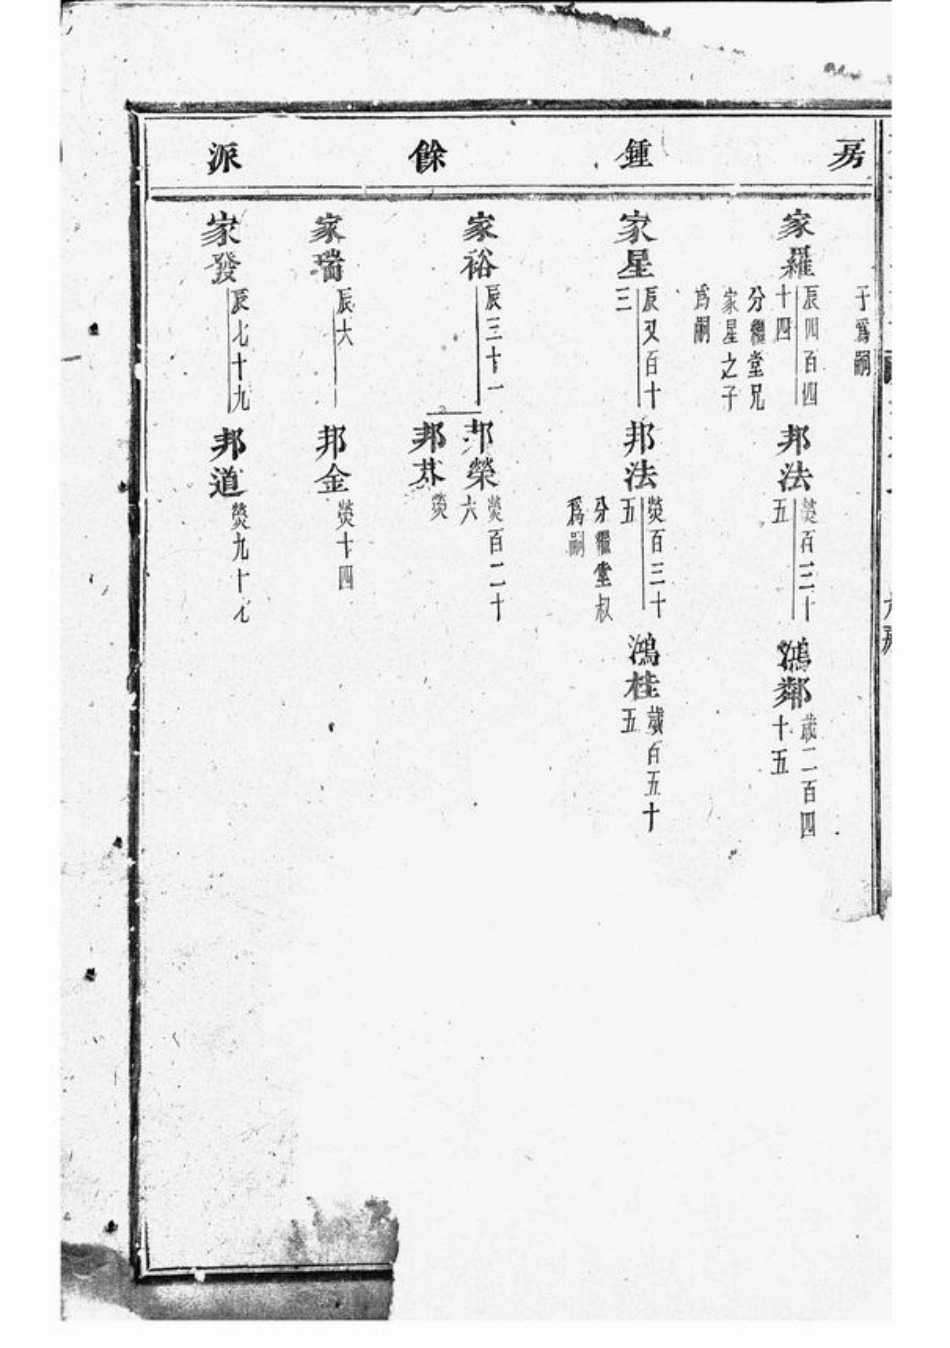 房鍾餘派
子爲嗣
家羅
辰四百四
十四
分繼堂兄
家星之子
爲嗣
邦法
熒百三十
五
鴻鄰
歲二百四
十五
家星
辰又百十
三
邦法
熒百三十
五
分繼堂叔
爲嗣
鴻桂
歲百五十
五
家裕
辰三十一
邦榮
熒百二十
六
邦
熒
家瑞
辰六
邦金
熒十四
家發
辰七十九
邦道
熒九十七